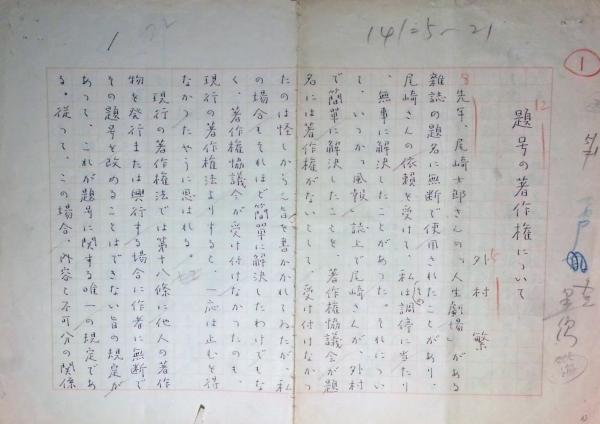 1
141=5~21
1
12
題号の著作権について
外村 繁
5
8
先年、尾崎士郎さんの、「人生劇場」がある
雑誌の題名に無断で使用されたことがあり、
尾崎さんの依頼を受けて、私は調停に当たり
、無事に解決したことがあった。それについ
て、いつか「風報」誌上で尾崎さんが、外村
で簡単に解決したことを、著作権協議会が題
名には著作権がないとして、受け付けなかっ
たのは怪しからん旨を書かかれてゐたが、私
の場合もそれほど簡単に解決したわけでもな
く、著作権協議会が受け付けなかつたのも、
現行の著作権法よりすると、一応は止むを得
なかつたやうに思はれる。
現行の著作権法では第十八條に他人の著作
物を発行または興行する場合に作者に無断で
その題号を改めることはできない旨の規定が
あって、これが題号に関する唯一の規定であ
る。従つて、この場合、内容と不可分の関係